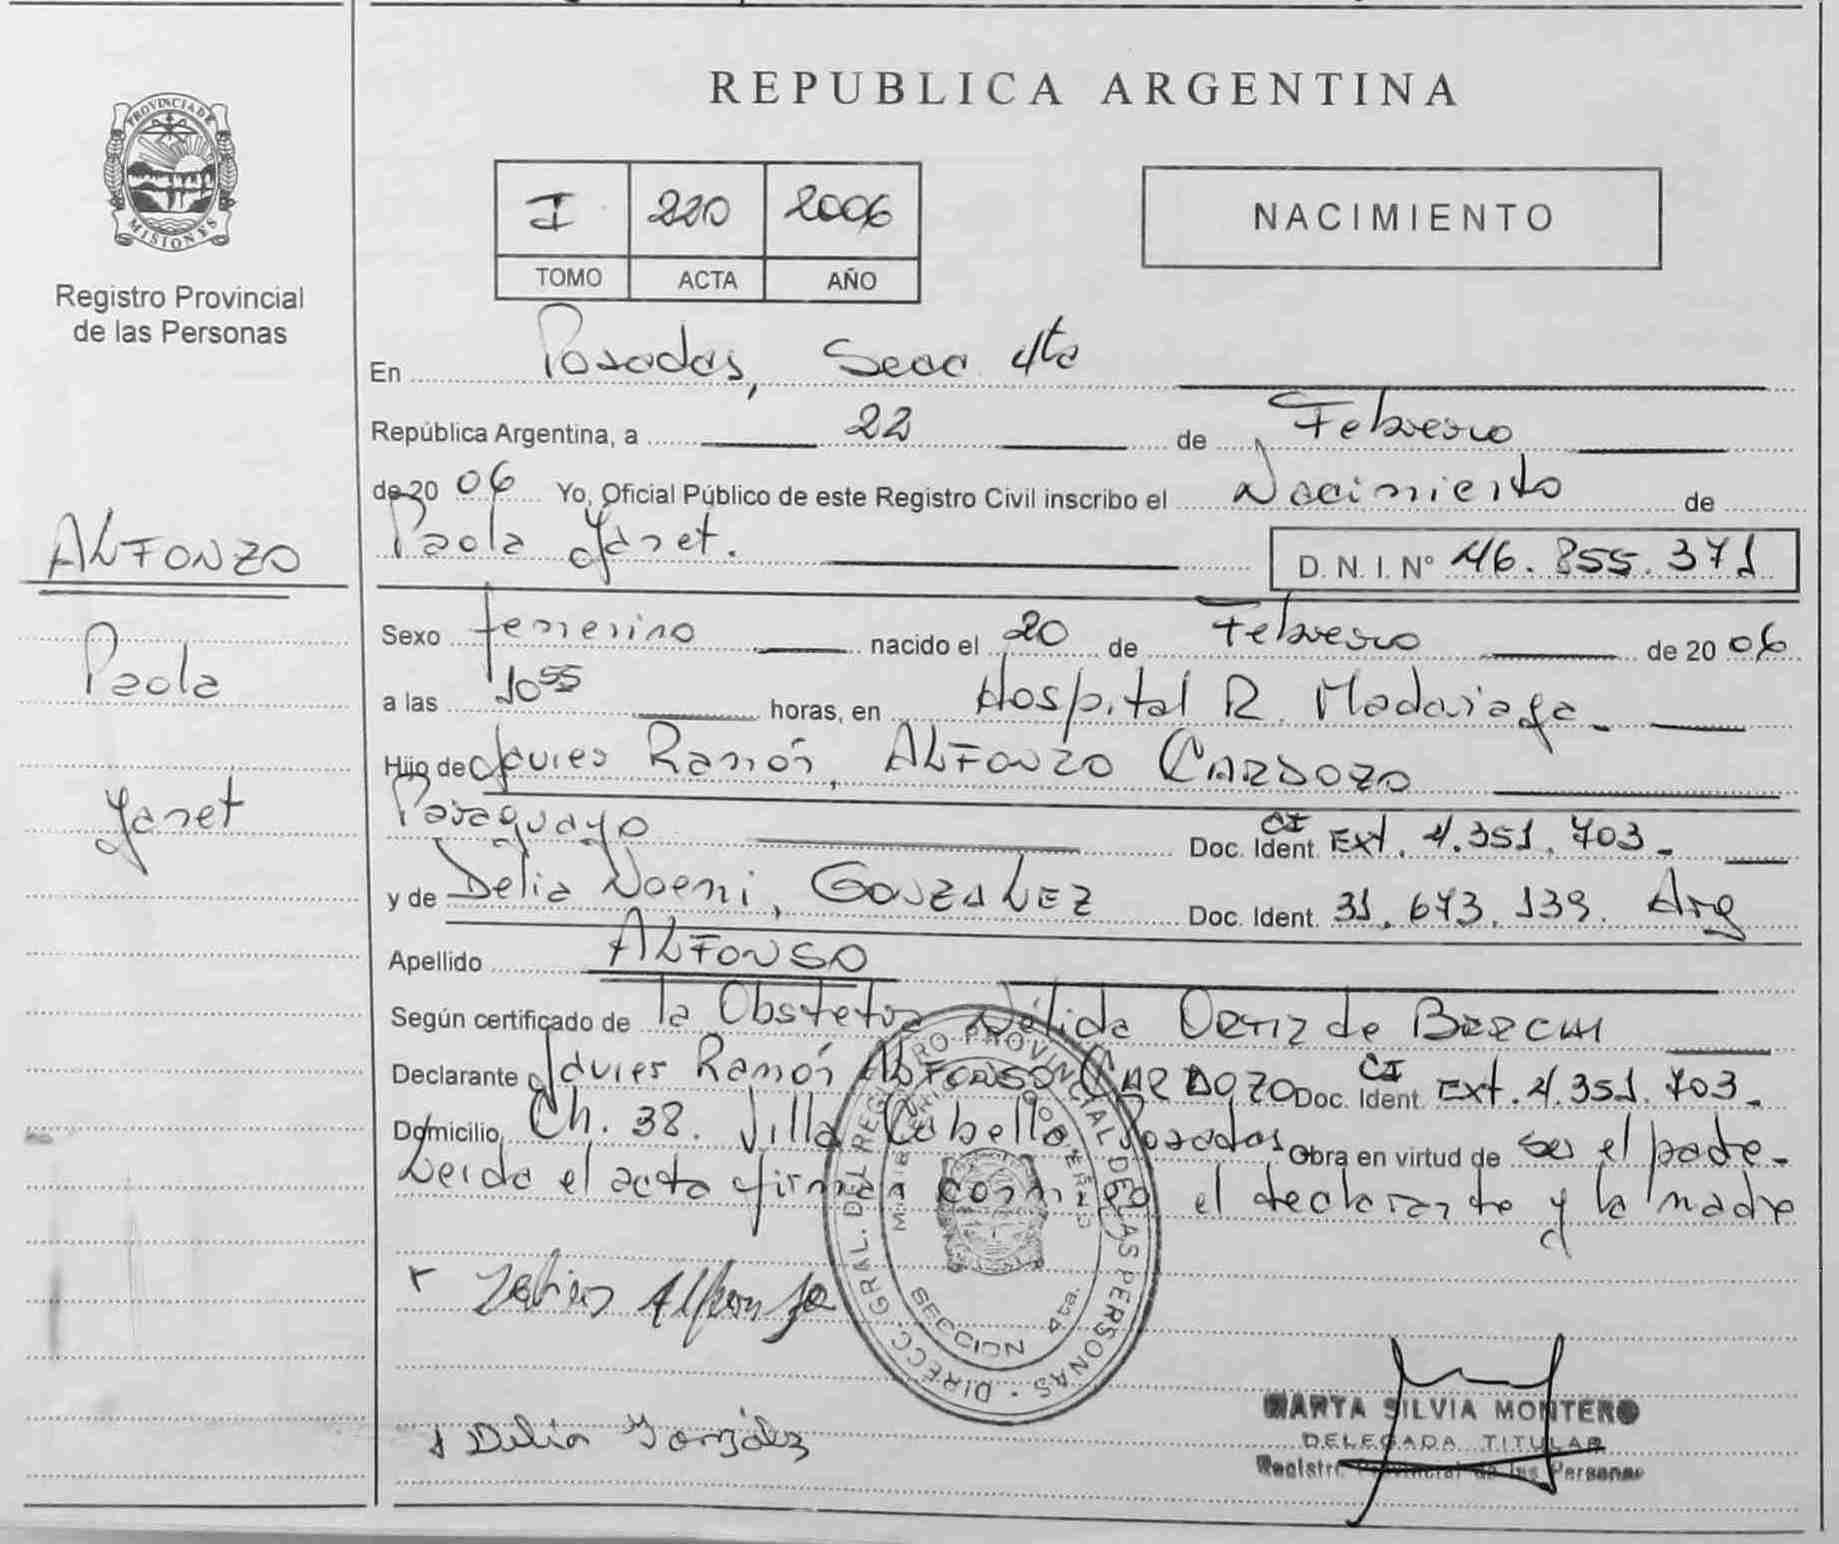 REPUBLICA ARGENTINA
PROVINCIA DE
MISIONES
Registro Provincial
de las Personas
I 220 2006
TOMO ACTA AÑO
NACIMIENTO
En Posadas, Secc 4ta
República Argentina, a 22 de Febrero
de 20 06 Yo, Oficial Público de este Registro Civil inscribo el Nacimiento de
Paola Janet. D. N. I. N° 46.855.371
ALFONZO
Paola
Janet
Sexo femenino nacido el 20 de Febrero de 20 06
a las 10 55 horas, en Hospital R. Madariaga
Hijo de Javier Ramón, ALFONZO CARDOZO
Paraguayo Doc. Ident. CI Ext. 4.351.703.
y de Delia Noemi, GONZALEZ Doc. Ident. 31.673.139. Arg
Apellido ALFONSO
Según certificado de la Obstetra Nélida ORTIZ de BERCHI
Declarante Javier Ramón ALFONSO CARDOZO Doc. Ident. CI Ext. 4.351.703.
Domicilio Ch. 38. Villa Cabello Posadas Obra en virtud de ser el padre.
Leida el acta firman conmigo el declarante y la madre
DIRECC. GRAL. DEL REGISTRO PROVINCIAL DE LAS PERSONAS
SECCION 4ta.
Javier Alfonzo
Delia González
MARTA SILVIA MONTERO
DELEGADA TITULAR
Registro Provincial de las Personas